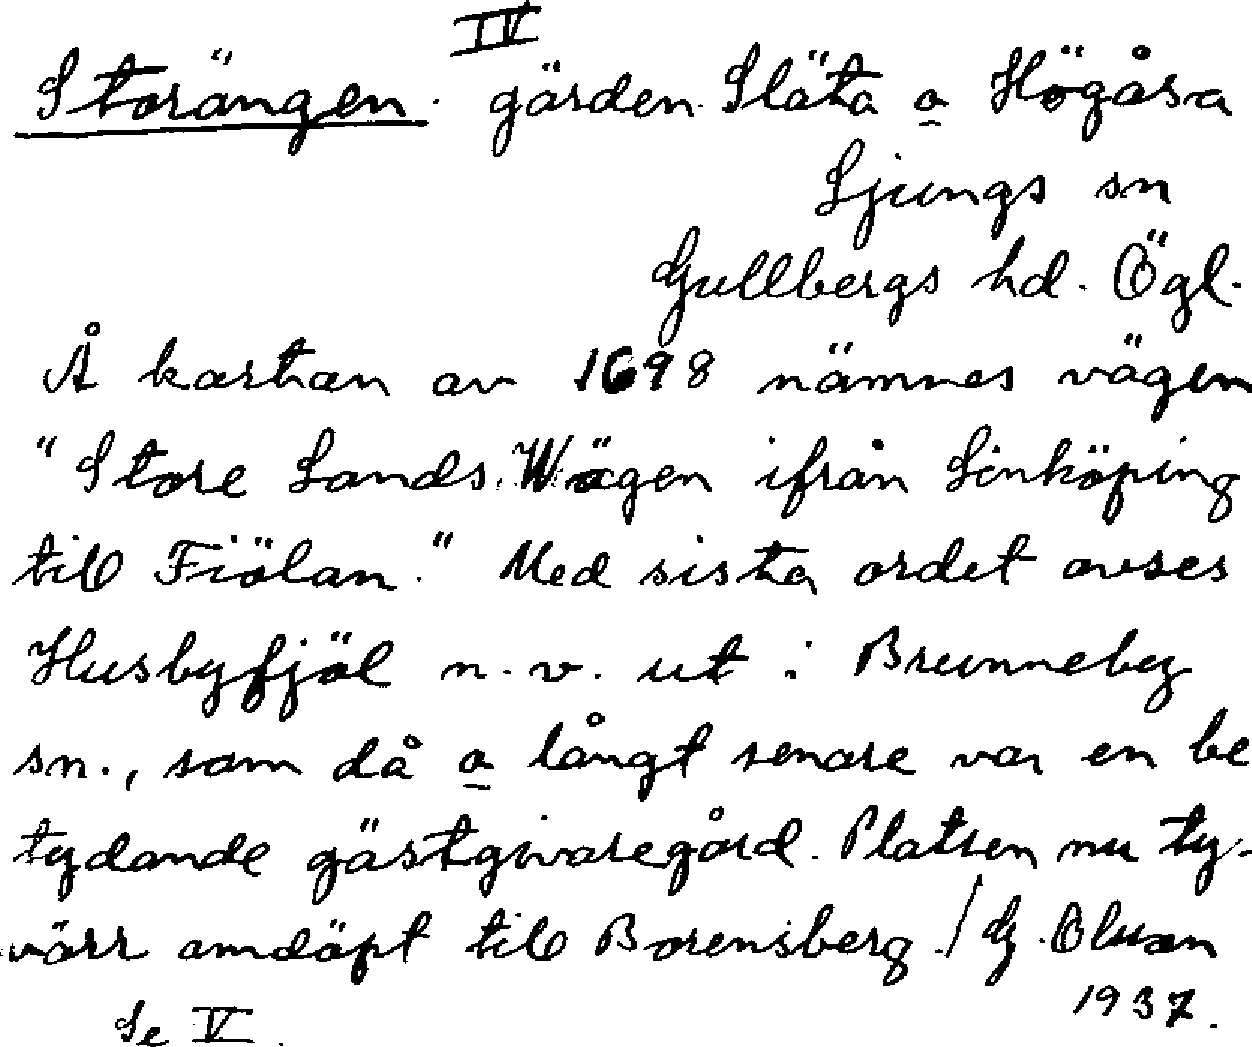 IV
Storängen. gärden Släta o Högåsa
Ljungs sn
Gullbergs hd. Ögl.
Å kartan av 1698 nämnes vägen
"Store Lands Wägen ifrån Linköping
till Fiölan." Med sista ordet avses
Husbyfjöl n.v. ut i Brunneby
sn., som då o långt senare var en be
tydande gästgivaregård. Platsen nu ty-
värr omdöpt till Borensberg./G. Olsson
1937.
Se V.